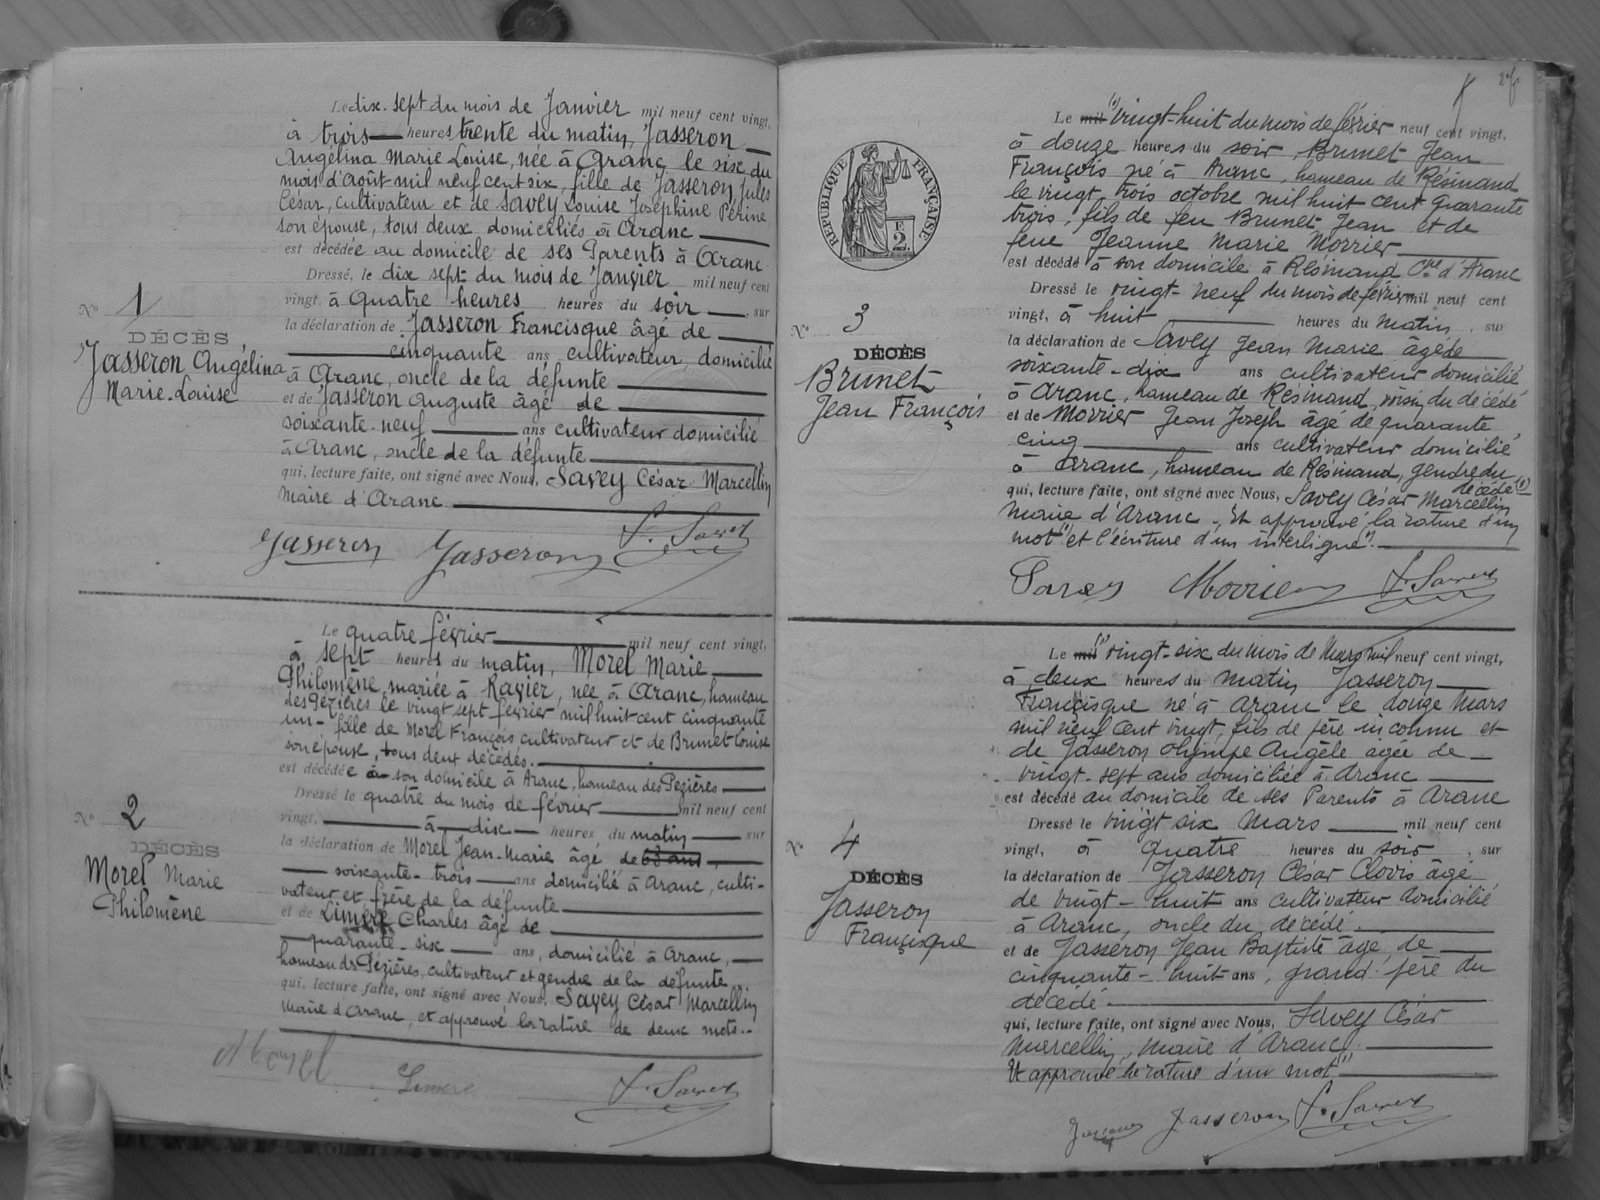 Le dix-sept du mois de Janvier mil neuf cent vingt,
à trois heures trente du matin, Jasseron
Angélina Marie Louise, née à Aranc le six du
mois d'août mil neuf cent six, fille de Jasseron Jules
César, cultivateur et de Savey Louise Joséphine Périne
son épouse, tous deux domiciliés à Aranc
est décédée au domicile de ses Parents à Aranc
Dressé, le dix sept du mois de Janvier mil neuf cent
vingt, à quatre heures heures du soir, sur
la déclaration de Jasseron Francisque âgé de
cinquante ans, cultivateur, domicilié
à Aranc, oncle de la défunte
et de Jasseron Auguste âgé de
soixante-neuf ans cultivateur domicilié
à Aranc, oncle de la défunte
qui, lecture faite, ont signé avec Nous, Savey César Marcellin
Maire d'Aranc
Jasseron Jasseron S. Savey
No 1
DÉCÈS
Jasseron Angélina
Marie-Louise
Le quatre février mil neuf cent vingt,
à sept heures du matin, Morel Marie
Philomène, mariée à Ravier, née à Aranc, hameau
des Pézières le vingt sept février mil huit cent cinquante
un - fille de Morel François cultivateur et de Brunet Louise
son épouse, tous deux décédés.
est décédée à son domicile à Aranc, hameau des Pézières
Dressé le quatre du mois de février mil neuf cent
vingt, à dix heures du matin sur
la déclaration de Morel Jean-Marie âgé de 63 ans,
soixante-trois ans domicilié à Aranc, culti-
vateur et frère de la défunte
et de Limeré Charles âgé de
quarante-six ans, domicilié à Aranc,
hameau des Pézières, cultivateur et gendre de la défunte
qui, lecture faite, ont signé avec Nous, Savey César Marcellin
Maire d'Aranc, et approuvé la rature de deux mots..
Morel Limeré S. Savey
No 2
DÉCÈS
Morel Marie
Philomène
RÉPUBLIQUE FRANÇAISE
2
Le mil (1) vingt-huit du mois de février neuf cent vingt,
à douze heures du soir, Brunet Jean
François né à Aranc, hameau de Résinand
le vingt trois octobre mil huit cent quarante
trois, fils de feu Brunet Jean et de
feue Jeanne Marie Morrier
est décédé à son domicile à Résinand Cne d'Aranc
Dressé le vingt-neuf du mois de février mil neuf cent
vingt, à huit heures du matin, sur
la déclaration de Savey Jean Marie âgé de
soixante-dix ans cultivateur domicilié
à Aranc, hameau de Résinand, voisin du décédé
et de Morrier Jean Joseph âgé de quarante
cinq ans cultivateur domicilié
à Aranc, hameau de Résinand, gendre du
décédé (1)
qui, lecture faite, ont signé avec Nous, Savey César Marcellin
Maire d'Aranc. Et approuvé la rature d'un
mot et l'écriture d'un interligne.
Savey Morrier S. Savey
No 3
DÉCÈS
Brunet
Jean François
Le mil (1) vingt-six du mois de Mars mil neuf cent vingt,
à deux heures du matin Jasseron
Francisque né à Aranc le douze Mars
mil neuf cent vingt, fils de père inconnu et
de Jasseron Olympe Angèle agée de
vingt-sept ans domiciliée à Aranc
est décédé au domicile de ses Parents à Aranc
Dressé le vingt six Mars mil neuf cent
vingt, à quatre heures du soir, sur
la déclaration de Jasseron César Clovis âgé
de vingt-huit ans cultivateur domicilié
à Aranc, oncle du décédé.
et de Jasseron Jean Baptiste âgé de
cinquante-huit ans, grand-père du
décédé.
qui, lecture faite, ont signé avec Nous, Savey César
Marcellin, Maire d'Aranc.
Et approuvé la rature d'un mot (1)
Jasseron Jasseron S. Savey
No 4
DÉCÈS
Jasseron
Francisque